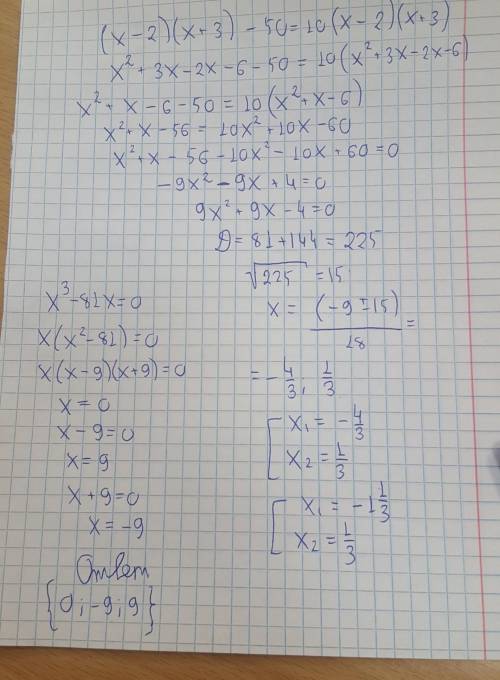 (x-2)(x+3) - 50 = 10(x-2)(x+3)
x² + 3x - 2x - 6 - 50 = 10(x² + 3x - 2x - 6)
x² + x - 6 - 50 = 10(x² + x - 6)
x² + x - 56 = 10x² + 10x - 60
x² + x - 56 - 10x² - 10x + 60 = 0
-9x² - 9x + 4 = 0
9x² + 9x - 4 = 0
D = 81 + 144 = 225
√225 = 15
x = (-9 ∓ 15)/18 =
= -4/3, 1/3
[ x₁ = -4/3
x₂ = 1/3
[ x₁ = -1 1/3
x₂ = 1/3
x³ - 81x = 0
x(x² - 81) = 0
x(x-9)(x+9) = 0
x = 0
x - 9 = 0
x = 9
x + 9 = 0
x = -9
Ответ
{0; -9; 9}